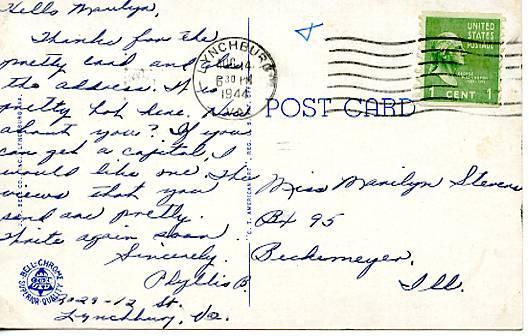 Hello Marilyn,
Thanks for the
pretty card and
the address. It
pretty hot here.
about you? If you
can get a capital, I
would like one. The
views that you
send are pretty.
Write again soon.
Sincerely,
Phyllis B.
St.
Lynchburg, Va.
LYNCHBURG
14
6 30 PM
1944
VA.
UNITED
STATES
POSTAGE
GEORGE
WASHINGTON
1 CENT 1
POST CARD
Miss Marilyn Stevens
Bx 95
Beckemeyer,
Ill.
BELL-CHROME
SUPERIOR QUALITY
"C.T. AMERICAN ART"